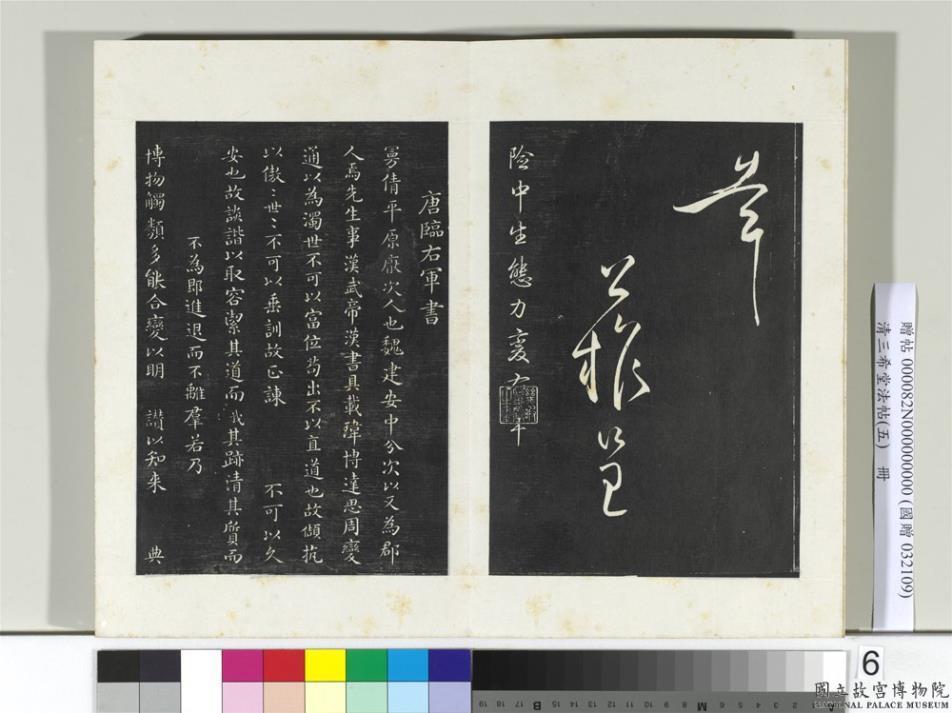 險中生態力變
唐臨右軍書
曼倩平原厭次人也魏建安中分次以又為郡
人焉先生事漢武帝漢書具載瑋博達思周變
通以為濁世不可以富位苟出不以直道也故頡抗
以傲〻世〻不可以垂訓故正諫 不可以久
安也故談諧以取容潔其道而 其跡清其質而
不為郎進退而不離羣若乃
博物觸類多能合變以明 讃以知来 典
贈帖 000082N000000000 (國贈 032109)
清三希堂法帖(五) 冊
6
B
M
A
19 18 17 16 15
國立故宮博物院
NATIONAL PALACE MUSEUM